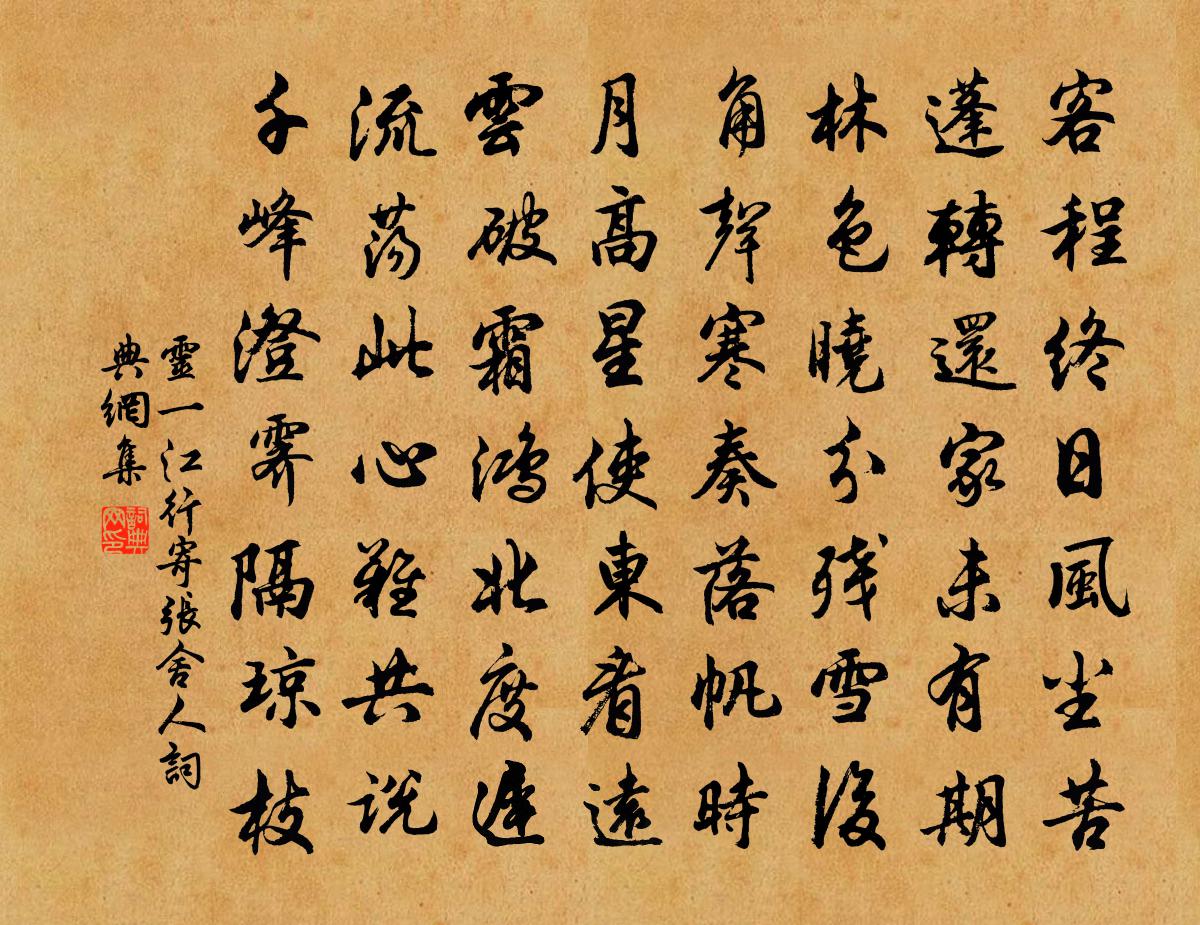 客程終日風尘苦
蓬轉還家未有期
林色曉分残雪後
角聲寒奏落帆時
月高星使東看遠
雲破霜鴻北度遲
流荡此心難共説
千峰澄霽隔琼枝
靈一江行寄張舍人詞
典網集
詞典
网印